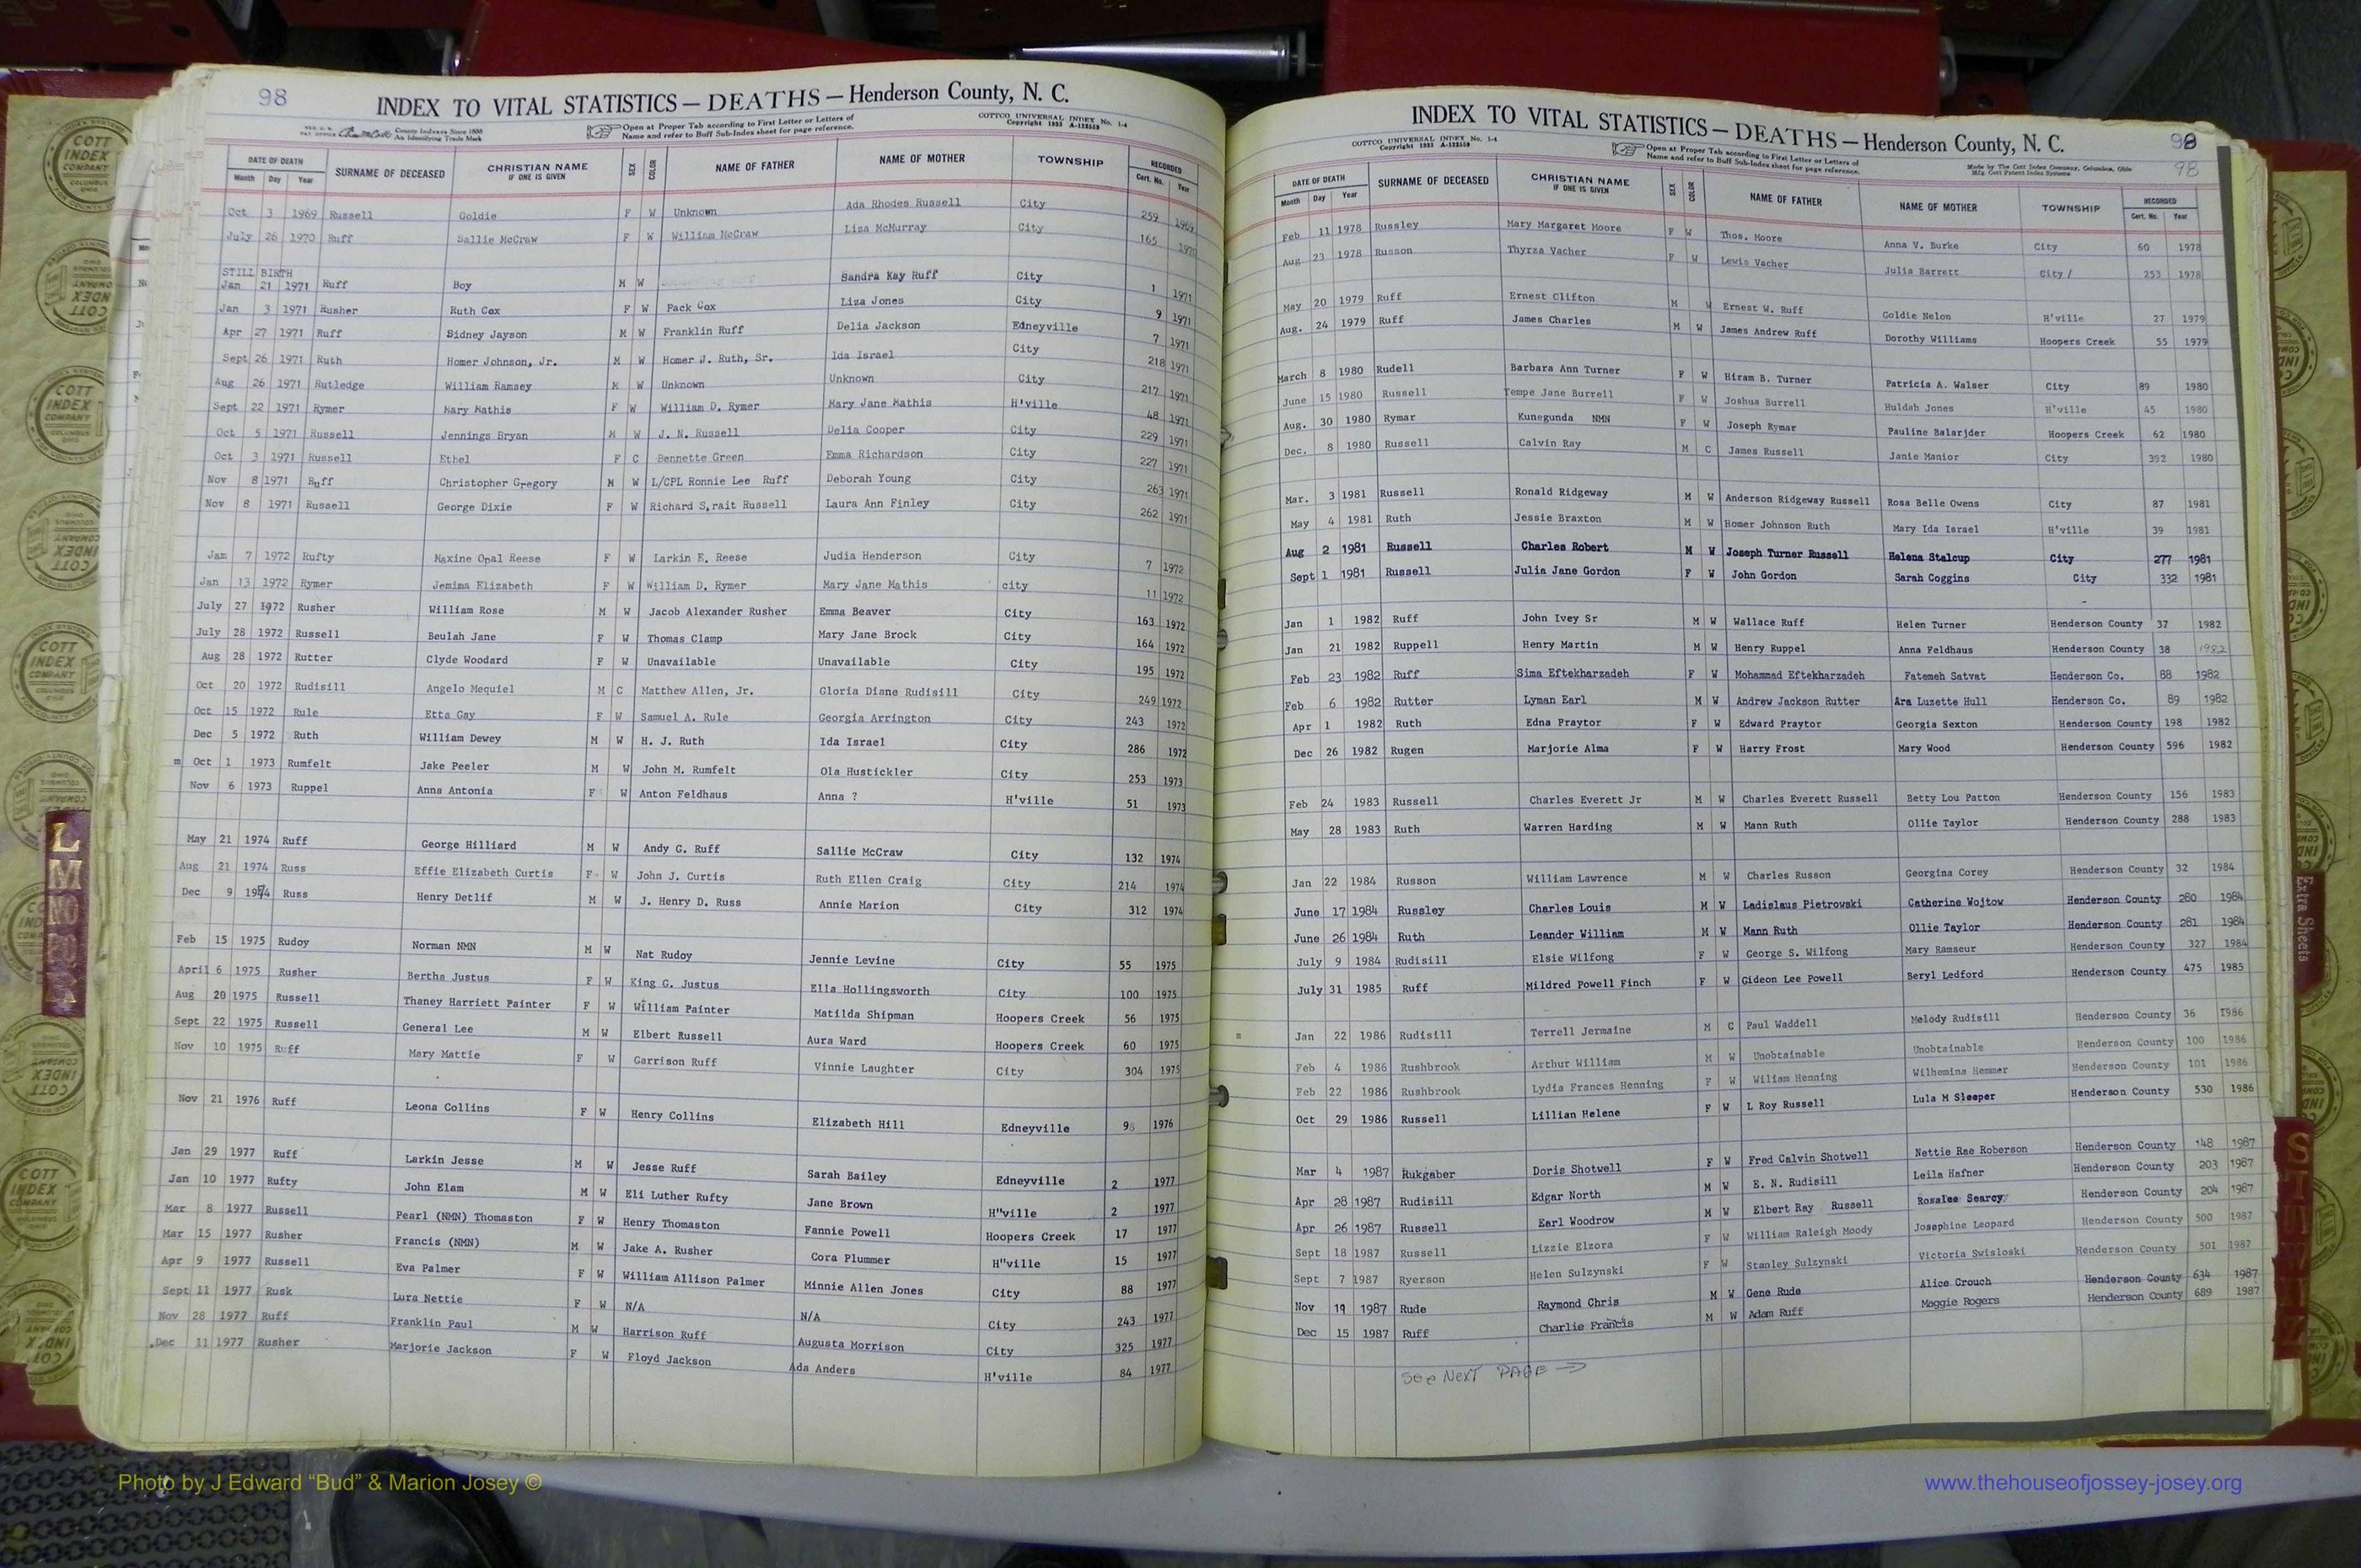 98
INDEX TO VITAL STATISTICS — DEATHS — Henderson County, N. C.
REG. U. S. PAT. OFFICE County Indexes Since 1888 An Identifying Trade Mark
Open at Proper Tab according to First Letter or Letters of Name and refer to Buff Sub-Index sheet for page reference.
COTTCO UNIVERSAL INDEX No. 1-4 Copyright 1933 A-132559
DATE OF DEATH SURNAME OF DECEASED CHRISTIAN NAME IF ONE IS GIVEN SEX COLOR NAME OF FATHER NAME OF MOTHER TOWNSHIP RECORDED
Month Day Year Cert. No. Year
Oct 3 1969 Russell Goldie F W Unknown Ada Rhodes Russell City 259 1969
July 26 1970 Ruff Sallie McCraw F W William McCraw Liza McMurray City 165 1970
STILL BIRTH
Jan 21 1971 Ruff Boy M W Sandra Kay Ruff City 1 1971
Jan 3 1971 Rusher Ruth Cox F W Pack Cox Liza Jones City 9 1971
Apr 27 1971 Ruff Sidney Jayson M W Franklin Ruff Delia Jackson Edneyville 7 1971
Sept 26 1971 Ruth Homer Johnson, Jr. M W Homer J. Ruth, Sr. Ida Israel City 218 1971
Aug 26 1971 Rutledge William Ramsey M W Unknown Unknown City 217 1971
Sept 22 1971 Rymer Mary Mathis F W William D. Rymer Mary Jane Mathis H'ville 48 1971
Oct 5 1971 Russell Jennings Bryan M W J. N. Russell Delia Cooper City 229 1971
Oct 3 1971 Russell Ethel F C Bennette Green Emma Richardson City 227 1971
Nov 8 1971 Ruff Christopher Gregory M W L/CPL Ronnie Lee Ruff Deborah Young City 263 1971
Nov 8 1971 Russell George Dixie F W Richard S,rait Russell Laura Ann Finley City 262 1971
Jam 7 1972 Rufty Maxine Opal Reese F W Larkin E. Reese Judia Henderson City 7 1972
Jan 13 1972 Rymer Jemima Elizabeth F W William D. Rymer Mary Jane Mathis city 11 1972
July 27 1972 Rusher William Rose M W Jacob Alexander Rusher Emma Beaver City 163 1972
July 28 1972 Russell Beulah Jane F W Thomas Clamp Mary Jane Brock City 164 1972
Aug 28 1972 Rutter Clyde Woodard F W Unavailable Unavailable City 195 1972
Oct 20 1972 Rudisill Angelo Mequiel M C Matthew Allen, Jr. Gloria Diane Rudisill City 249 1972
Oct 15 1972 Rule Etta Gay F W Samuel A. Rule Georgia Arrington City 243 1972
Dec 5 1972 Ruth William Dewey M W H. J. Ruth Ida Israel City 286 1972
m Oct 1 1973 Rumfelt Jake Peeler M W John M. Rumfelt Ola Hustickler City 253 1973
Nov 6 1973 Ruppel Anna Antonia F W Anton Feldhaus Anna ? H'ville 51 1973
May 21 1974 Ruff George Hilliard M W Andy G. Ruff Sallie McCraw City 132 1974
Aug 21 1974 Russ Effie Elizabeth Curtis F W John J. Curtis Ruth Ellen Craig City 214 1974
Dec 9 1974 Russ Henry Detlif M W J. Henry D. Russ Annie Marion City 312 1974
Feb 15 1975 Rudoy Norman NMN M W Nat Rudoy Jennie Levine City 55 1975
April 6 1975 Rusher Bertha Justus F W King G. Justus Ella Hollingsworth City 100 1975
Aug 20 1975 Russell Thaney Harriett Painter F W William Painter Matilda Shipman Hoopers Creek 56 1975
Sept 22 1975 Russell General Lee M W Elbert Russell Aura Ward Hoopers Creek 60 1975
Nov 10 1975 Ruff Mary Mattie F W Garrison Ruff Vinnie Laughter City 304 1975
Nov 21 1976 Ruff Leona Collins F W Henry Collins Elizabeth Hill Edneyville 1976
Jan 29 1977 Ruff Larkin Jesse M W Jesse Ruff Sarah Bailey Edneyville 2 1977
Jan 10 1977 Rufty John Elam M W Eli Luther Rufty Jane Brown H"ville 2 1977
Mar 8 1977 Russell Pearl (NMN) Thomaston F W Henry Thomaston Fannie Powell Hoopers Creek 17 1977
Mar 15 1977 Rusher Francis (NMN) M W Jake A. Rusher Cora Plummer H"ville 15 1977
Apr 9 1977 Russell Eva Palmer F W William Allison Palmer Minnie Allen Jones City 88 1977
Sept 11 1977 Rusk Lura Nettie F W N/A N/A City 243 1977
Nov 28 1977 Ruff Franklin Paul M W Harrison Ruff Augusta Morrison City 325 1977
Dec 11 1977 Rusher Marjorie Jackson F W Floyd Jackson Ada Anders H'ville 84 1977
INDEX TO VITAL STATISTICS — DEATHS — Henderson County, N. C.
98
98
COTTCO UNIVERSAL INDEX No. 1-4 Copyright 1933 A-132559
Open at Proper Tab according to First Letter or Letters of Name and refer to Buff Sub-Index sheet for page reference.
Made by The Cott Index Company, Columbus, Ohio Mfg. Cott Patent Index Systems
DATE OF DEATH SURNAME OF DECEASED CHRISTIAN NAME IF ONE IS GIVEN SEX COLOR NAME OF FATHER NAME OF MOTHER TOWNSHIP RECORDED
Month Day Year Cert. No. Year
Feb 11 1978 Russley Mary Margaret Moore F W Thos. Moore Anna V. Burke City 60 1978
Aug 23 1978 Russon Thyrza Vacher F W Lewis Vacher Julia Barrett City / 253 1978
May 20 1979 Ruff Ernest Clifton M W Ernest W. Ruff Goldie Nelon H'ville 27 1979
Aug. 24 1979 Ruff James Charles M W James Andrew Ruff Dorothy Williams Hoopers Creek 55 1979
March 8 1980 Rudell Barbara Ann Turner F W Hiram B. Turner Patricia A. Walser City 89 1980
June 15 1980 Russell Tempe Jane Burrell F W Joshua Burrell Huldah Jones H'ville 45 1980
Aug. 30 1980 Rymar Kunegunda NMN F W Joseph Rymar Pauline Balarjder Hoopers Creek 62 1980
Dec. 8 1980 Russell Calvin Ray M C James Russell Janie Manior City 392 1980
Mar. 3 1981 Russell Ronald Ridgeway M W Anderson Ridgeway Russell Rosa Belle Owens City 87 1981
May 4 1981 Ruth Jessie Braxton M W Homer Johnson Ruth Mary Ida Israel H'ville 39 1981
Aug 2 1981 Russell Charles Robert M W Joseph Turner Russell Helena Stalcup City 277 1981
Sept 1 1981 Russell Julia Jane Gordon F W John Gordon Sarah Coggins City 332 1981
Jan 1 1982 Ruff John Ivey Sr M W Wallace Ruff Helen Turner Henderson County 37 1982
Jan 21 1982 Ruppell Henry Martin M W Henry Ruppel Anna Feldhaus Henderson County 38 1982
Feb 23 1982 Ruff Sima Eftekharzadeh F W Mohammad Eftekharzadeh Fatemeh Satvat Henderson Co. 88 1982
Feb 6 1982 Rutter Lyman Earl M W Andrew Jackson Rutter Ara Luzette Hull Henderson Co. 89 1982
Apr 1 1982 Ruth Edna Praytor F W Edward Praytor Georgia Sexton Henderson County 198 1982
Dec 26 1982 Rugen Marjorie Alma F W Harry Frost Mary Wood Henderson County 596 1982
Feb 24 1983 Russell Charles Everett Jr M W Charles Everett Russell Betty Lou Patton Henderson County 156 1983
May 28 1983 Ruth Warren Harding M W Mann Ruth Ollie Taylor Henderson County 288 1983
Jan 22 1984 Russon William Lawrence M W Charles Russon Georgina Corey Henderson County 32 1984
June 17 1984 Russley Charles Louis M W Ladislaus Pietrowski Catherine Wojtow Henderson County 280 1984
June 26 1984 Ruth Leander William M W Mann Ruth Ollie Taylor Henderson County 281 1984
July 9 1984 Rudisill Elsie Wilfong F W George S. Wilfong Mary Ramseur Henderson County 327 1984
July 31 1985 Ruff Mildred Powell Finch F W Gideon Lee Powell Beryl Ledford Henderson County 475 1985
Jan 22 1986 Rudisill Terrell Jermaine M C Paul Waddell Melody Rudisill Henderson County 36 1986
Feb 4 1986 Rushbrook Arthur William M W Unobtainable Unobtainable Henderson County 100 1986
Feb 22 1986 Rushbrook Lydia Frances Henning F W Wiliam Henning Wilhemina Hemmer Henderson County 101 1986
Oct 29 1986 Russell Lillian Helene F W L Roy Russell Lula M Sleeper Henderson County 530 1986
Mar 4 1987 Rukgaber Doris Shotwell F W Fred Calvin Shotwell Nettie Rae Roberson Henderson County 148 1987
Apr 28 1987 Rudisill Edgar North M W E. N. Rudisill Leila Hafner Henderson County 203 1987
Apr 26 1987 Russell Earl Woodrow M W Elbert Ray Russell Rosalee Searcy Henderson County 204 1987
Sept 18 1987 Russell Lizzie Elzora F W William Raleigh Moody Josephine Leopard Henderson County 500 1987
Sept 7 1987 Ryerson Helen Sulzynski F W Stanley Sulzynski Victoria Swisloski Henderson County 501 1987
Nov 19 1987 Rude Raymond Chris M W Gene Rude Alice Crouch Henderson County 634 1987
Dec 15 1987 Ruff Charlie Francis M W Adam Ruff Maggie Rogers Henderson County 689 1987
See Next PAGE →
COTT INDEX COMPANY COLUMBUS OHIO
L M
Extra Sheets
S T
Photo by J Edward “Bud” & Marion Josey ©
www.thehouseofjossey-josey.org